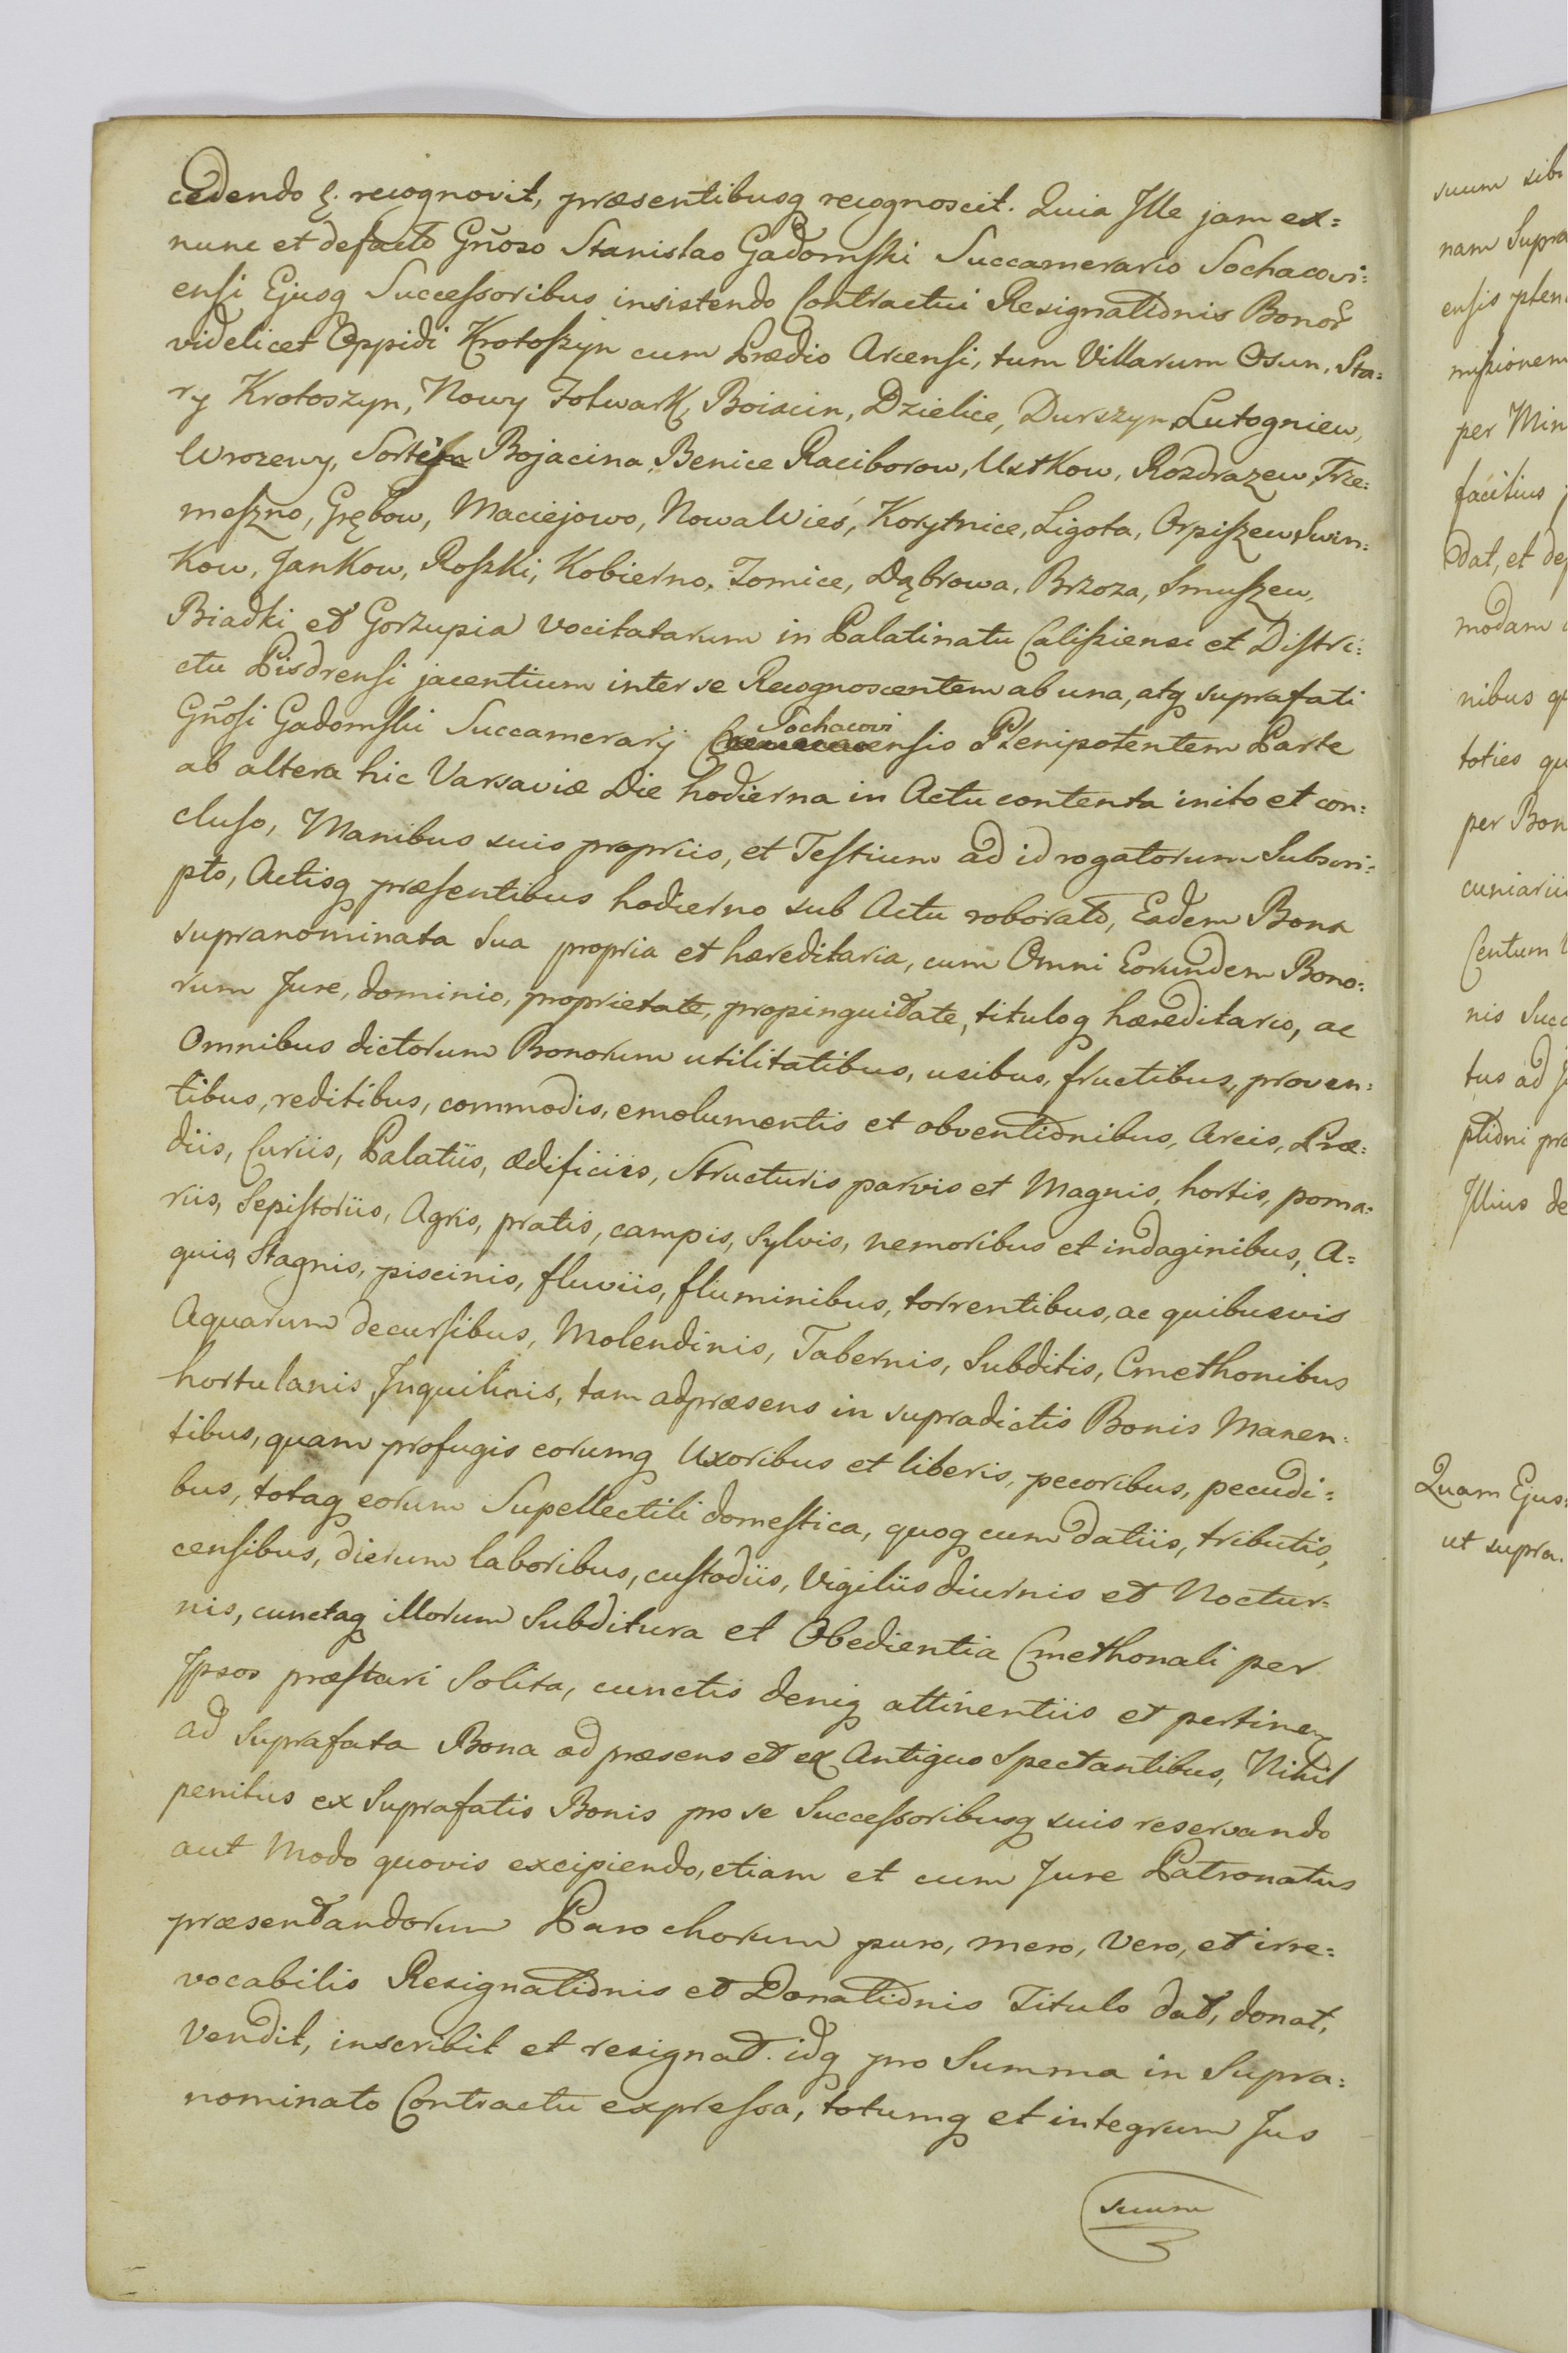 cedendo &. recognovit, præsentibusq recognoscit. Quia Ille jam ex=
nunc et defacto Gñoso Stanislao Gadomski Succamerario Sochacovi=
ensi Ejusq Successoribus insistendo Contractui Resignationis Bonor̃
videlicet Oppidi Krotoszyn cum Prædio Arcensi, tum Villarum Osun, Sta=
ry Krotoszyn, Nowy Folwark, Boiacin, Dzielice, Durszyn Lutogniew,
Wrozewy, Bojacina Benice Raciborow, Ustkow, Rozdrazew, Trze=
meszno, Grębow, Maciejowo, Nowa Wieś, Korytnice, Ligota, Orpiszew, Swin=
kow, Jankow, Roszki, Kobierno, Tomice, Dąbrowa, Brzoza, Smuszew,
Biadki et Gorzupia vocitatarum in Palatinatu Calisziensi et Distri=
ctu Pisdrensi jacentium inter se Recognoscentem ab una, atq suprafati
Gñosi Gadomski Succamerarij Sochaconviensis Plenipotentem Parte
ab altera hic Varsaviæ Die hodierna in Actu contenta inito et con=
cluso, Manibus suis propriis, et Testium ad id rogatorum Subscri=
pto, Actisq præsentibus hodierno sub Actu roborato, Eadem Bona
supranominata Sua propria et hæreditaria, cum Omni Eorundem Bono=
rum Jure, dominio, proprietate, propinquitate, tituloq hæreditario, ac
Omnibus dictorum Bonorum utilitatibus, usibus, fructibus, proven=
tibus, reditibus, commodis, emolumentis et obventionibus, Arcis, Præ=
diis, Curiis, Palatiis, Ædificiis, Structuris parvis et Magnis, hortis, poma=
riis, Sepistoriis, Agris, pratis, campis, Sylvis, nemoribus et indaginibus, A=
quis, Stagnis, piscinis, fluviis, fluminibus, torrentibus, ac quibusvis
Aquarum decursibus, Molendinis, Tabernis, Subditis, Cmethonibus
hortulanis, Inquilinis, tam adpræsens in supradictis Bonis Manen=
tibus, quam profugis eorumq Uxoribus et liberis, pecoribus, pecudi=
bus, totaq eorum Supellectili domestica, quoq cum datiis, tributis,
censibus, dierum laboribus, custodiis, Vigiliis diurnis et Noctur=
nis, cunctaq illorum Subditura et Obedientia Cmethonali per
Ipsos præstari Solita, cunctis deniq attinentiis et pertinen
ad Suprafata Bona ad præsens et ex Antiquo Spectantibus, Nihil
penitus ex Suprafatis Bonis pro se Successoribusq suis reservando
aut Modo quovis excipiendo, etiam et cum Jure Patronatus
præsentandorum Parochorum puro, mero, Vero, et irre=
vocabilis Resignationis et Donationis Titulo dat, donat,
Vendit, inscribit et resignat. idq pro Summa in Supra=
nominato Contractu expressa, totumq et integrum Jus
suum
suum sibi
nam Supra
ensis plen
missionem
per Min
facilius
dat, et de
modam
nibus qu
toties qu
per Bon
cuniarii
Centum
nis Succ
tus ad J
ptioni pro
Illius de
Quam Ejus=
ut supra.